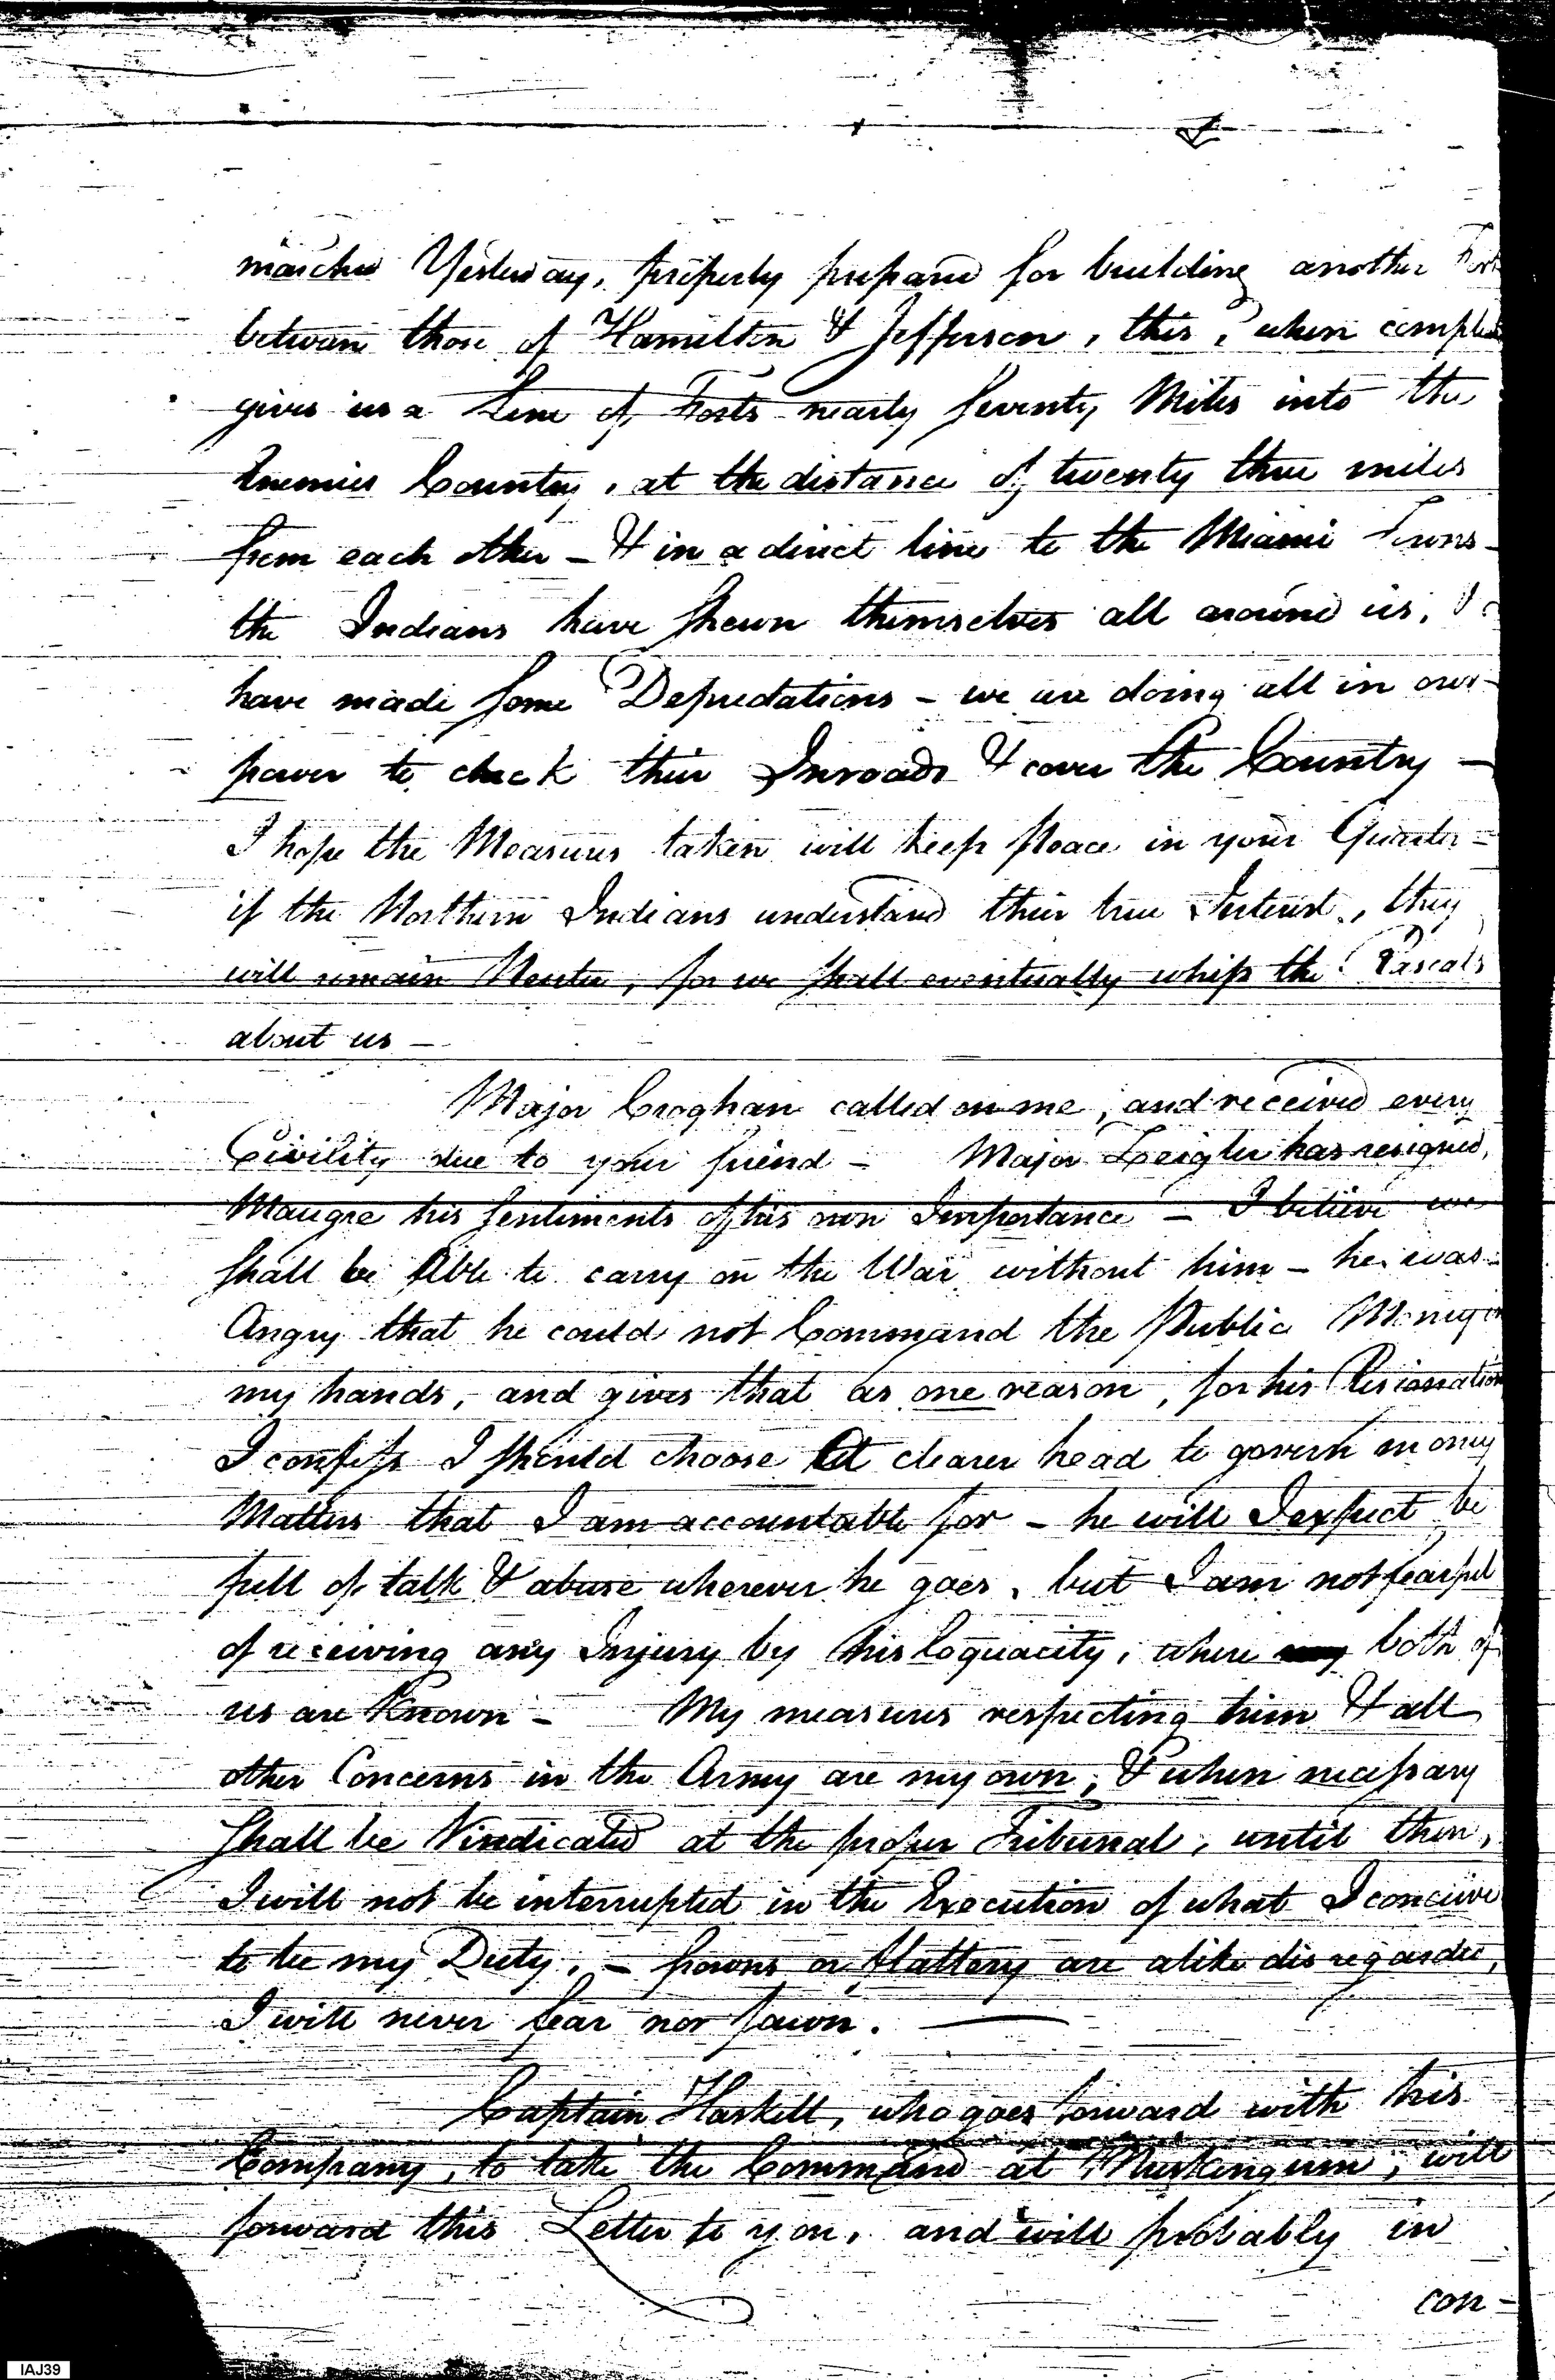 marched Yesterday, properly prepared for building another Fort
between those of Hamilton & Jefferson, this, when
gives us a Line of Forts nearly Seventy Miles into the
Enemies Country, at the distance of twenty three miles
from each other - & in a direct line to the Miami Towns -
the Indians have shewn themselves all around us, &
have made some Depredations - we are doing all in our
power to check their Inroads & cover the Country -
I hope the Measures taken will keep Peace in your Quarter -
if the Northern Indians understand their true Interest, they
will remain Neuter, for we shall eventually whip the Rascals
about us -
Major Croghan called on me, and received every
Civility due to your friend - Major Zeigler has resigned,
Maugre his sentiments of his own Importance - I believe we
shall be Able to carry on the War without him - he was
Angry that he could not Command the Public Money in
my hands, and gives that as one reason, for his Resignation
I confess I should choose a clearer head to govern money
Matters that I am accountable for - he will I expect be
full of talk & abuse wherever he goes, but I am not fearful
of receiving any Injury by his loquacity, where both of
us are Known - My measures respecting him & all
other Concerns in the Army are my own, & when necessary
shall be Vindicated at the proper Tribunal, until then,
I will not be interrupted in the Execution of what I conceive
to be my Duty, - frowns or flattery are alike disregarded,
I will never fear nor fawn. -
Captain Haskell, who goes forward with his
Company, to take the Command at Muskingum, will
forward this Letter to you, and will probably in
con-
IAJ39